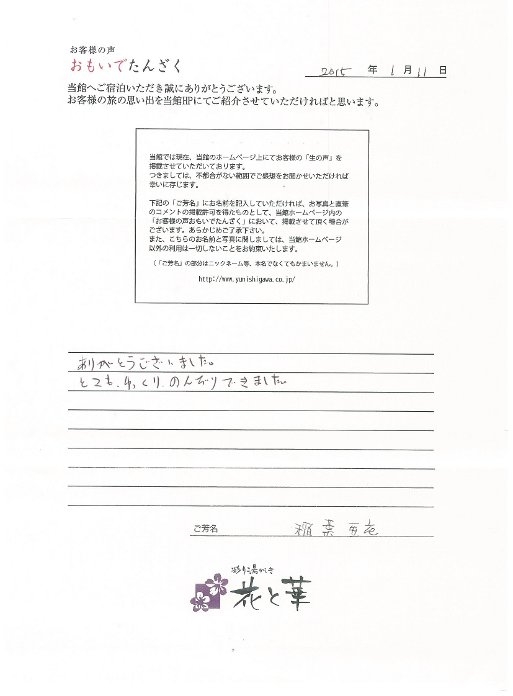 お客様の声
おもいでたんざく
2015 年 1月 11 日
当館へご宿泊いただき誠にありがとうございます。
お客様の旅の思い出を当館HPにてご紹介させていただければと思います。
当館では現在、当館のホームページ上にてお客様の「生の声」を
掲載させていただいております。
つきましては、不都合がない範囲でご感想をお聞かせいただければ
幸いに存じます。
下記の「ご芳名」にお名前を記入していただければ、お写真と直筆
のコメントの掲載許可を得たものとして、当館ホームページ内の
「お客様の声おもいでたんざく」において、掲載させて頂く場合が
ございます。あらかじめご了承下さい。
また、こちらのお名前と写真に関しましては、当館ホームページ
以外の利用は一切しないことをお約束いたします。
(「ご芳名」の部分はニックネーム等、本名でなくてもかまいません。)
http://www.yunishigawa.co.jp/
ありがとうございました。
とても、ゆっくり、のんびりできました。
ご芳名 稲葉
彩り湯かしき
花と華